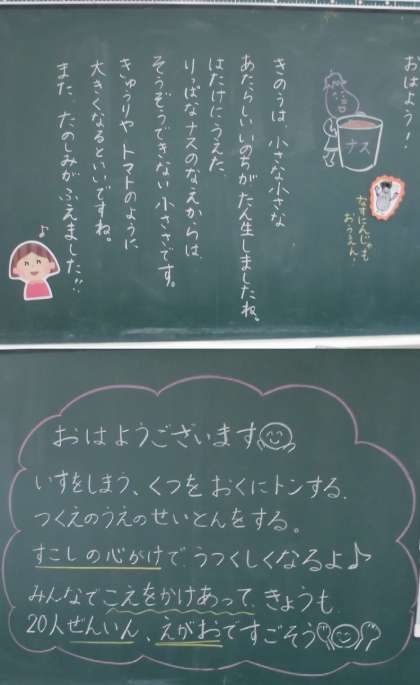 おはよう！
きのうは、小さな小さな
あたらしいいのちがたん生しましたね。
はたけにうえた
りっぱなナスのなえからは、
そうぞうできない小ささです。
きゅうりや トマトのように
大きくなるといいですね。
また、たのしみがふえました！！
ナス
なすにんじゃも
おうえん！
おはようございます
いすをしまう、くつを おくにトンする、
つくえのうえのせいとんをする。
すこしの心がけで、うつくしくなるよ♪
みんなでこえをかけあって、きょうも、
20人ぜんいん、えがおですごそう